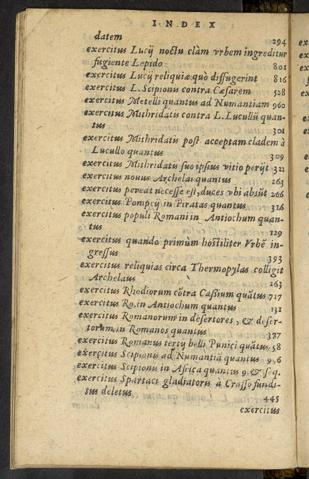 INDEX
datem 294
exercitus Lucij noctu clàm vrbem ingreditur
fugiente Lepido 801
exercitus Lucij reliquiæ quò diffugerint 816
exercitus L. Scipionis contra Cæsarem 528
exercitus Metelli quantus ad Numantiam 960
exercitus Mithridatis contra L. Lucullũ quan-
tus 301
exercitus Mithridatis post acceptam cladem à
Lucullo quantus 309
exercitus Mithridatis suo ipsius vitio perijt 321
exercitus nouus Archelai quantus 261
exercitus pereat necesse est, duces vbi absũt 266
exercitus Pompeij in Piratas quantus 316
exercitus populi Romani in Antiochum quan-
tus 129
exercitus quando primùm hostiliter Vrbẽ in-
gressus 393
exercitus reliquias circa Thermopylas colligit
Archelaus 263
exercitus Rhodiorum cõtra Cassium quãtus 717
exercitus Ro. in Antiochum quantus 131
exercitus Romanorum in desertores, & deser-
torum in Romanos quantus 327
exercitus Romanus tertij belli Punici quãtus 58
exercitus Scipionis ad Numantiã quantus
exercitus Scipionis in Africa quantus
exercitus Spartaci gladiatoris à Crasso fundi-
tus deletus 445
exercitus